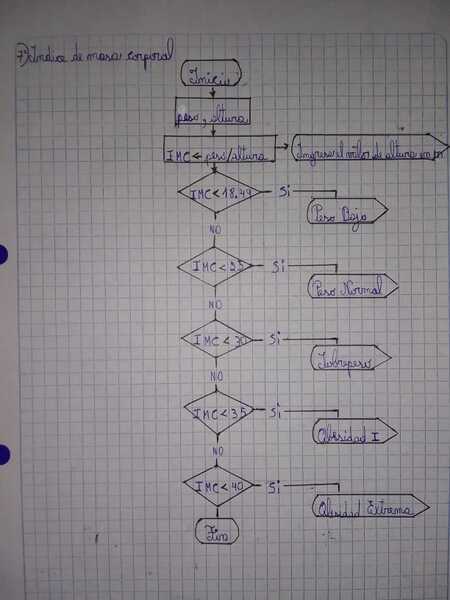 7) Indice de masa corporal
Inicio
peso, altura
IMC ← peso/altura
Ingrese el valor de altura en m
IMC < 18.49
Si
Peso Bajo
NO
IMC < 25
Si
Peso Normal
NO
IMC < 30
Si
Sobrepeso
NO
IMC < 35
Si
Obesidad I
NO
IMC < 40
Si
Obesidad Extrema
Fin